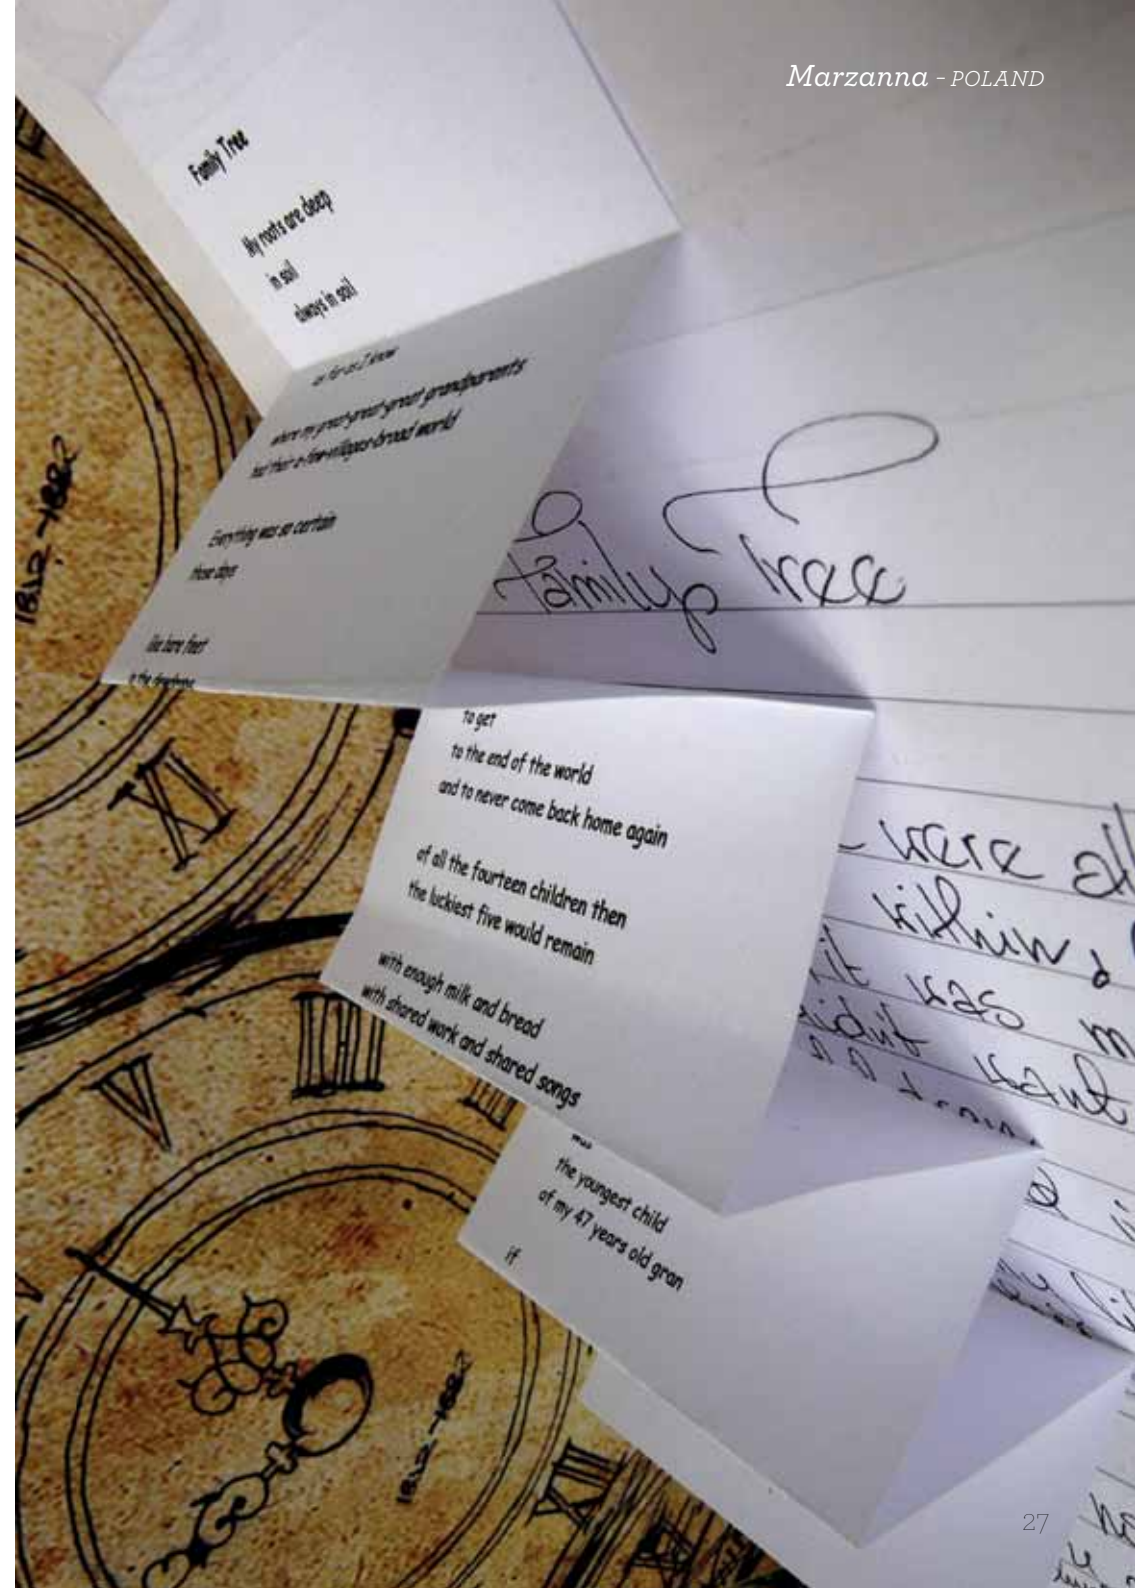 Marzanna - POLAND
Family Tree
My roots are deep
in soil
always in soil
as far as I know
where my great-great-great grandparents
had their a-few-villages-broad world
Everything was so certain
those days
like bare feet
in the
to get
to the end of the world
and to never come back home again
of all the fourteen children then
the luckiest five would remain
with enough milk and bread
with shared work and shared songs
the youngest child
of my 47 years old gran
if
Family Tree
were all
within,
it was m
didn't want
1812-1882
XI
V
IIII
III
1812-1882
XII
27